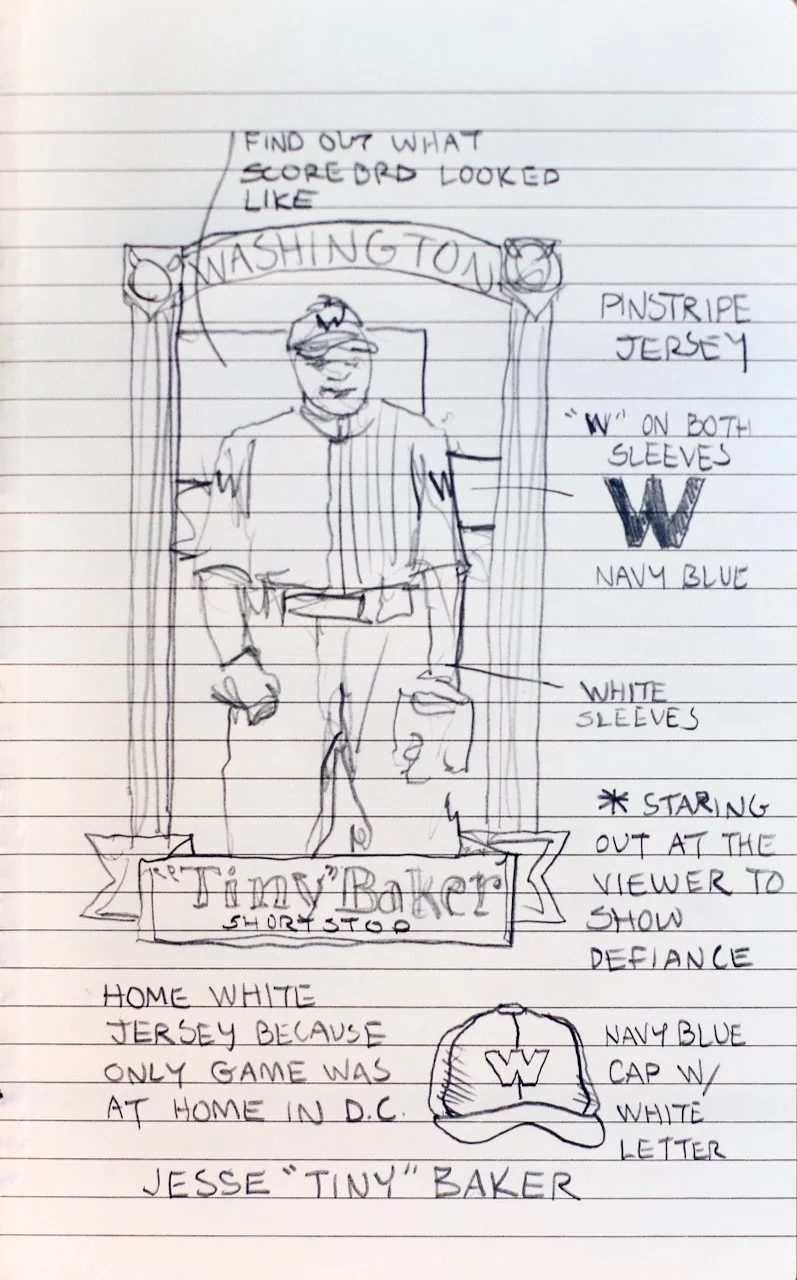 FIND OUT WHAT
SCOREBRD LOOKED
LIKE
WASHINGTON
W
PINSTRIPE
JERSEY
"W" ON BOTH
SLEEVES
W
W
W
NAVY BLUE
WHITE
SLEEVES
* STARING
OUT AT THE
VIEWER TO
SHOW
DEFIANCE
"Tiny" Baker
SHORTSTOP
HOME WHITE
JERSEY BECAUSE
ONLY GAME WAS
AT HOME IN D.C.
W
NAVY BLUE
CAP W/
WHITE
LETTER
JESSE "TINY" BAKER